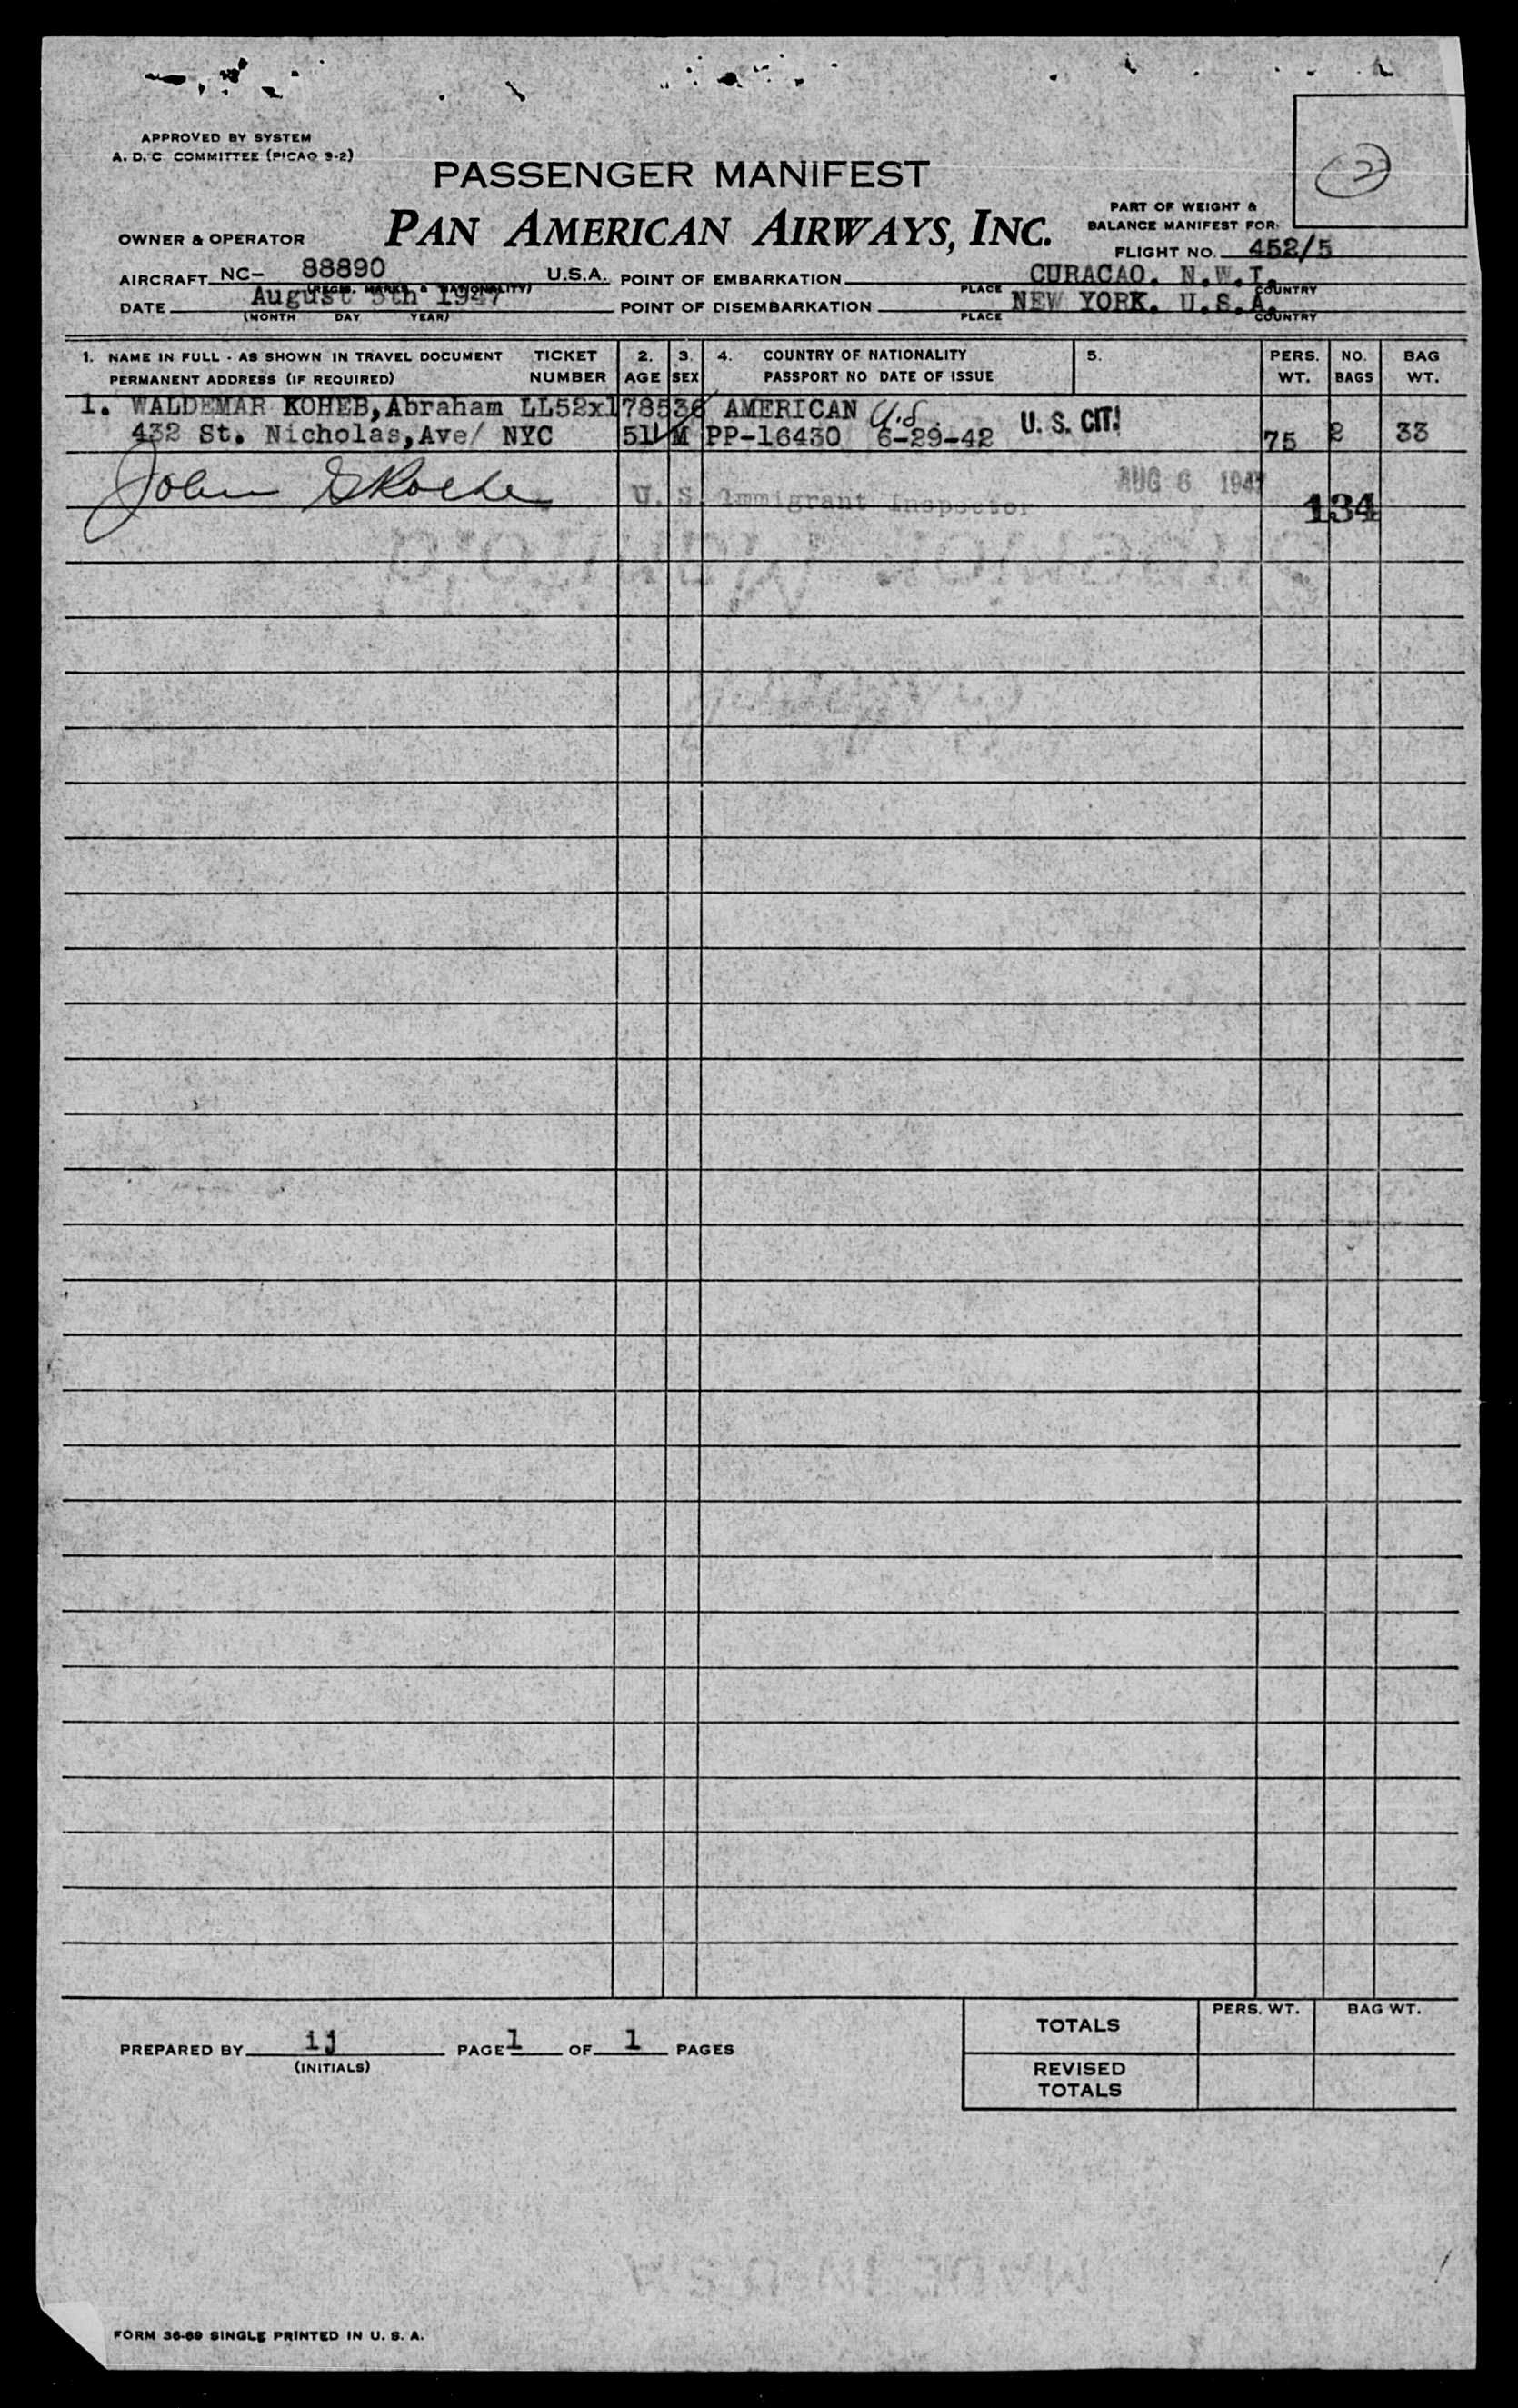 APPROVED BY SYSTEM
A. D. C. COMMITTEE (PICAO 9-2)
2
PASSENGER MANIFEST
PAN AMERICAN AIRWAYS, INC.
PART OF WEIGHT &
BALANCE MANIFEST FOR:
OWNER & OPERATOR
FLIGHT NO. 452/5
AIRCRAFT NC- 88890 U.S.A. POINT OF EMBARKATION CURACAO. N.W.I.
(REGIS. MARKS & NATIONALITY) PLACE COUNTRY
DATE August 5th 1947 POINT OF DISEMBARKATION NEW YORK. U.S.A.
(MONTH DAY YEAR) PLACE COUNTRY
1. NAME IN FULL - AS SHOWN IN TRAVEL DOCUMENT TICKET 2. 3. 4. COUNTRY OF NATIONALITY 5. PERS. NO. BAG
PERMANENT ADDRESS (IF REQUIRED) NUMBER AGE SEX PASSPORT NO DATE OF ISSUE WT. BAGS WT.
1. WALDEMAR KOHEB, Abraham LL52x178536 AMERICAN U.S. U. S. CIT!
432 St. Nicholas, Ave/ NYC 51 M PP-16430 6-29-42 75 2 33
John U. S. Immigrant Inspector AUG 6 1947
134
TOTALS PERS. WT. BAG WT.
PREPARED BY ij PAGE 1 OF 1 PAGES
(INITIALS)
REVISED
TOTALS
FORM 36-69 SINGLE PRINTED IN U. S. A.